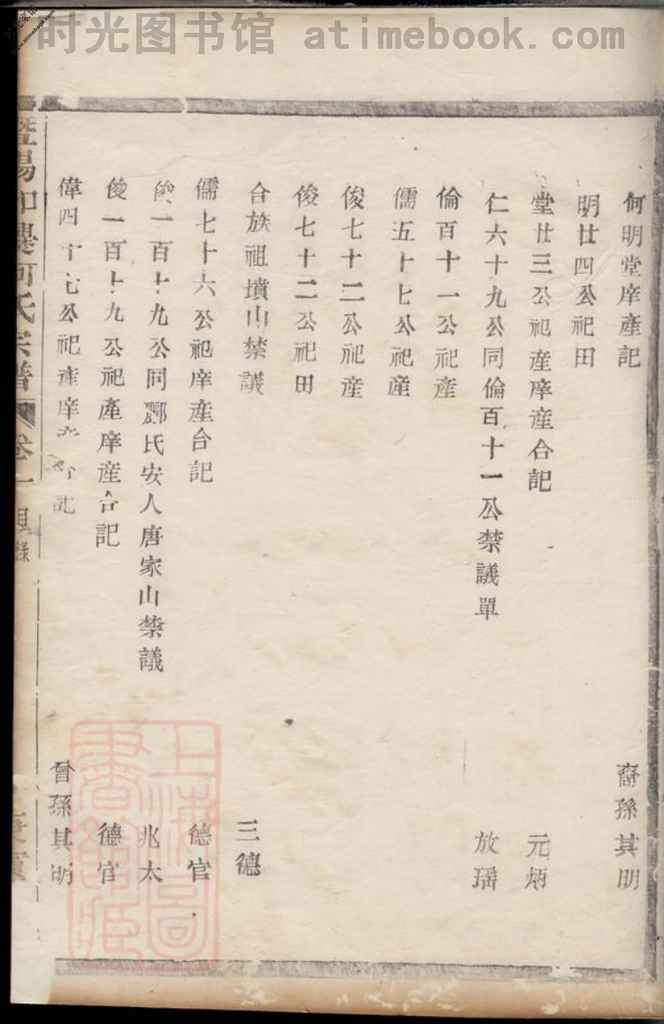 时光图书馆 atimebook.com
何明堂庠產記 裔孫其明
明廿四公祀田
堂廿三公祀產庠產合記 元炳
仁六十九公同倫百十一公禁議單 放瑶
倫百十一公祀產
儒五十七公祀產
俊七十二公祀產
俊七十二公祀田
合族祖墳山禁議 三德
儒七十六公祀庠產合記 德官
俊一百十九公同酈氏安人唐家山禁議 兆太
俊一百十九公祀產庠產合記 德官
偉四十七公祀產庠產合記 曾孫其明
暨陽 何氏宗譜 卷一 目錄
上海圖書館藏